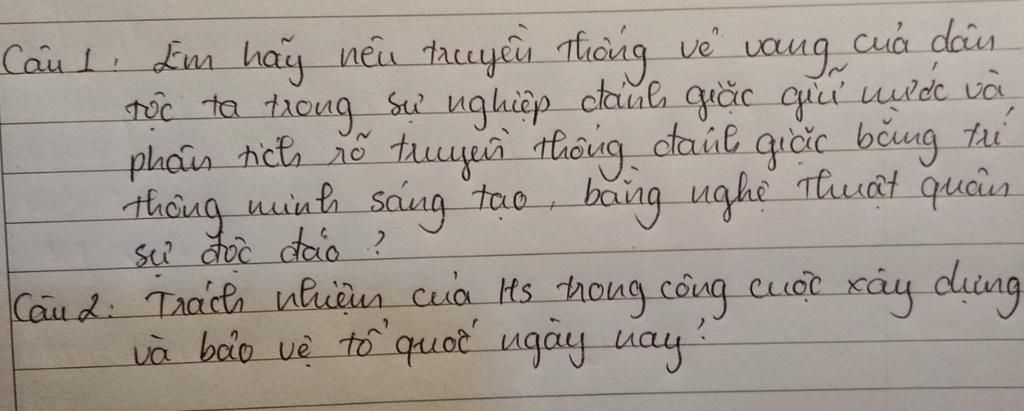 Câu 1: Em hãy nêu truyền thống vẻ vang của dân
tộc ta trong sự nghiệp đánh giặc giữ nước và
phân tích rõ truyền thống đánh giặc bằng trí
thông minh sáng tạo, bằng nghệ thuật quân
sự độc đáo?
Câu 2: Trách nhiệm của Hs trong công cuộc xây dựng
và bảo vệ tổ quốc ngày nay!